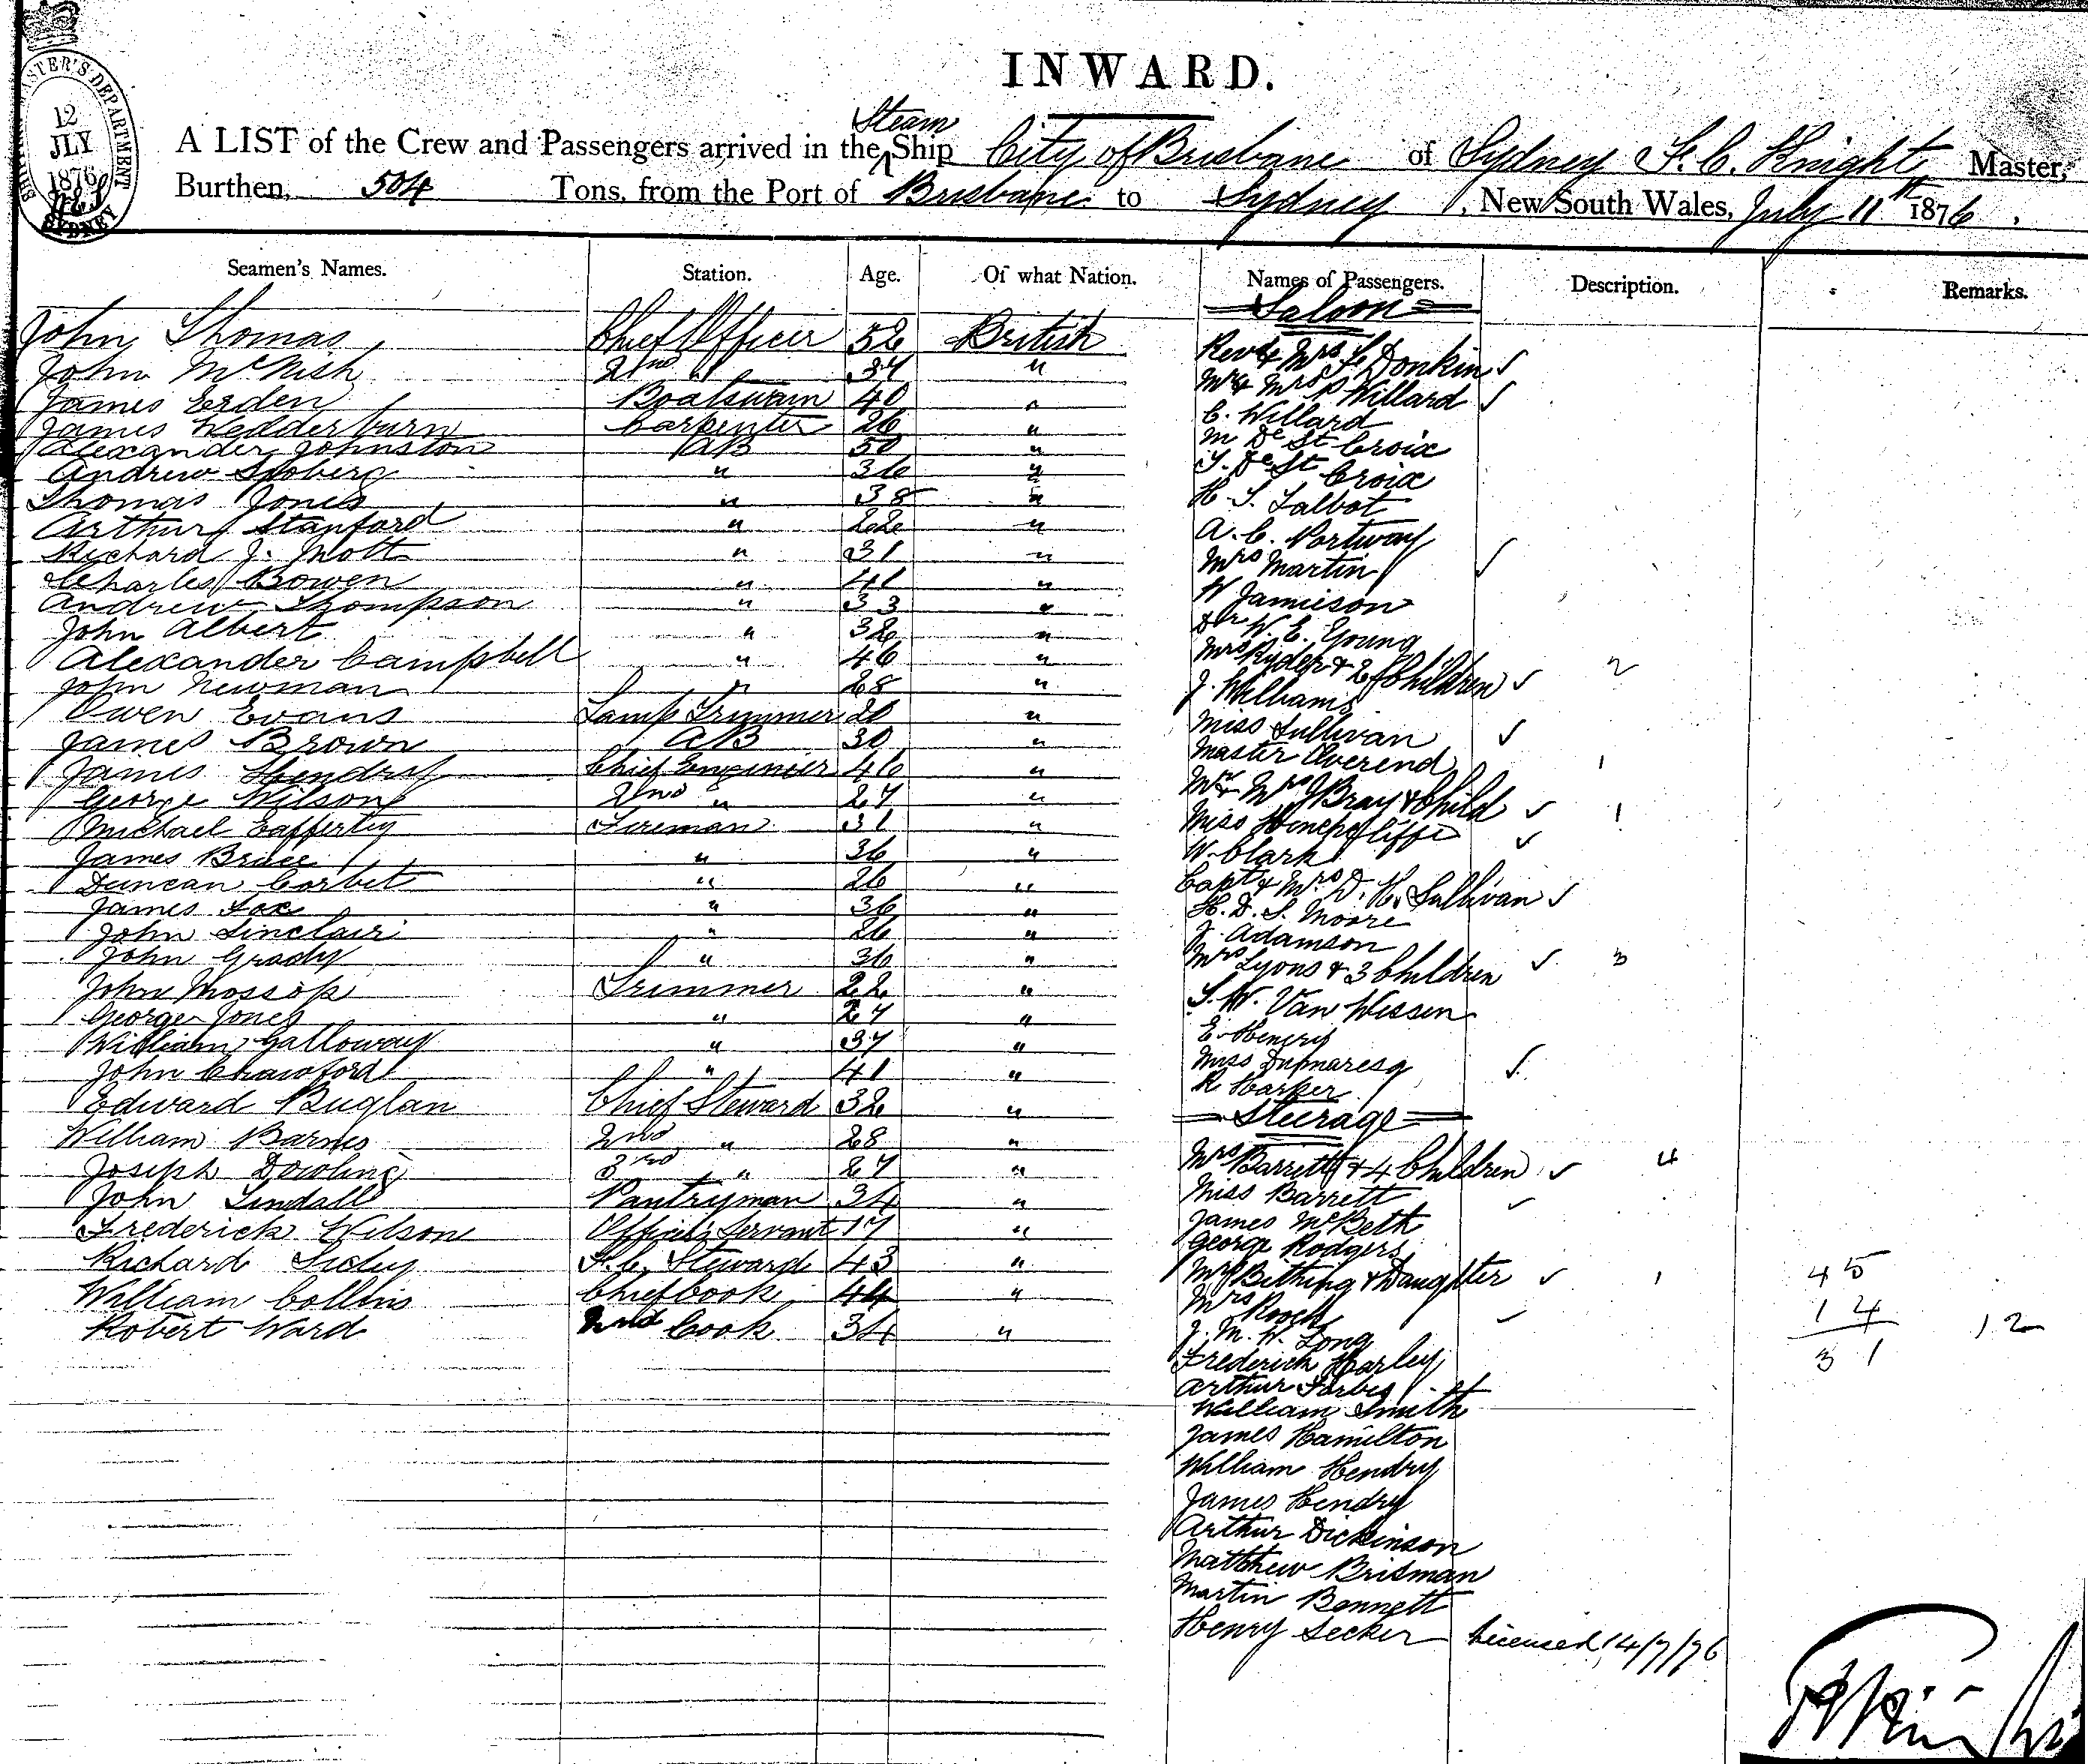 12
JLY
1876
SYDNEY
INWARD.
Steam
A LIST of the Crew and Passengers arrived in the Ship City of Brisbane of Sydney F. C. Knight, Master,
Burthen, 504 Tons, from the Port of Brisbane to Sydney, New South Wales, July 11th 1876.
Seamen's Names. Station. Age. Of what Nation. Names of Passengers. Description. Remarks.
Saloon
John Thomas Chief Officer 52 British
John McNish 2nd " 37 "
James Erden Boatswain 40 "
James Wedderburn Carpenter 26 "
Alexander Johnston AB 50 "
Andrew Sjoberg " 36 "
Thomas Jones " 38 "
Arthur Stanford " 22 "
Richard J. Mott " 31 "
Charles Bowen " 41 "
Andrew Thompson " 33 "
John Albert " 32 "
Alexander Campbell " 46 "
John Newman " 28 "
Owen Evans Lamp Trimmer 20 "
James Brown AB 30 "
James Hendry Chief Engineer 46 "
George Wilson 2nd " 27 "
Michael Cafferty Fireman 31 "
James Bruce " 36 "
Duncan Corbet " 26 "
James Fox " 36 "
John Sinclair " 26 "
John Grady " 36 "
John Mossop Trimmer 22 "
George Jones " 27 "
William Galloway " 37 "
John Crawford " 41 "
Edward Buglan Chief Steward 32 "
William Barnes 2nd " 28 "
Joseph Dowling 3rd " 27 "
John Tindall Pantryman 34 "
Frederick Wilson Officers Servant 17 "
Richard Sidey F.C. Steward 43 "
William Collins Chief Cook 44 "
Robert Ward 2nd Cook 34 "
Rev & Mrs F. Donkin ✓
Mr & Mrs P Willard ✓
C. Willard
M De St Croix
T. De St Croix
H. T. Talbot
A. C. Portway
Mrs Martin ✓
W Jamieson
Dr W. E. Young
Mrs Ryder & 2 Children ✓ 2
J. Williams
Miss Sullivan ✓
Master Overend 1
Mr & Mrs J Bray & Child ✓ 1
Miss Hinchcliffe ✓
W. Clark
Capt & Mrs D. H. Sullivan ✓
H. D. S. Moore
J. Adamson
Mrs Lyons & 3 Children ✓ 3
S. W. Van Wessen
E. Henery
Miss Dumaresq ✓
R Harper
Steerage
Mrs Barrett & 4 Children ✓ 4
Miss Barrett ✓
James McBeth
George Rodgers
Mrs Bithing & Daughter ✓ 1
Mrs Rooch ✓
J. M. W. Long
Frederick Harley
Arthur Forbes
William Smith
James Hamilton
William Hendry
James Hendry
Arthur Dickinson
Matthew Bridman
Martin Bennett
Henry Secker Licensed 14/7/76
45
14 12
31